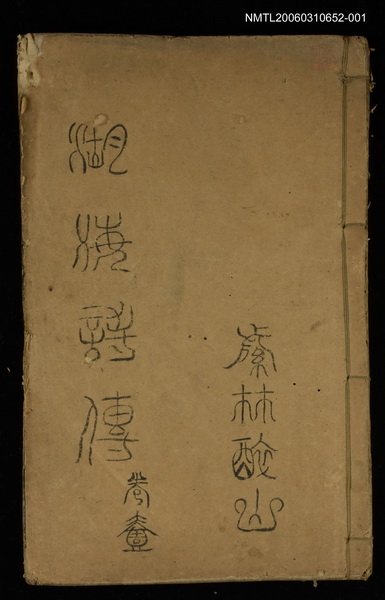 NMTL20060310652-001
林山
湖海詩傳
卷壹